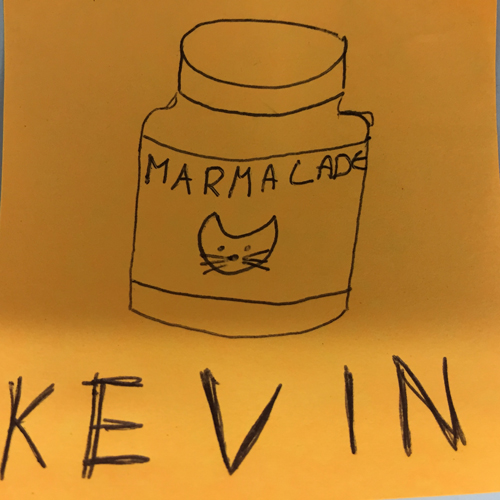 MARMALADE
KEVIN